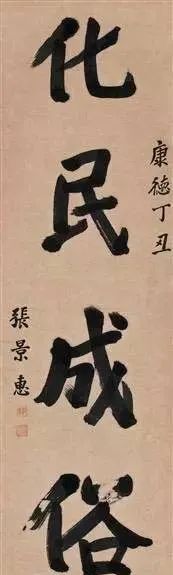 化民成俗
康德丁丑
張景惠